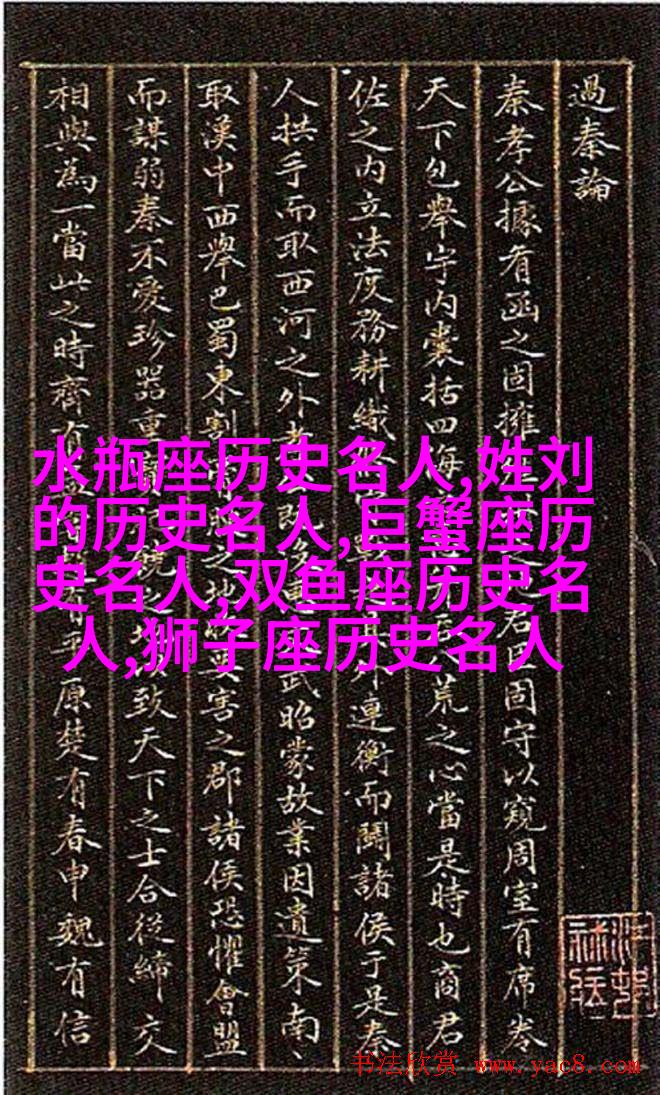 過秦論
秦孝公據有函之固擁 君臣固守以窺周室有席卷
天下包舉宇内囊括四海 荒之心當是時也商君
佐之内立法度務耕織 外連衡而鬭諸侯于是秦
人拱手而取西河之外 武昭蒙故業因遺策南
取漢中西舉巴蜀東割 之地 害之郡諸侯恐懼會盟
而謀弱秦不愛珍器重 致天下之士合從締交
相與為一當此之時齊有 平原楚有春申魏有信
水瓶座历史名人,姓刘
的历史名人,巨蟹座历
史名人,双鱼座历史名
人,狮子座历史名人
书法欣赏 www.yac8.com